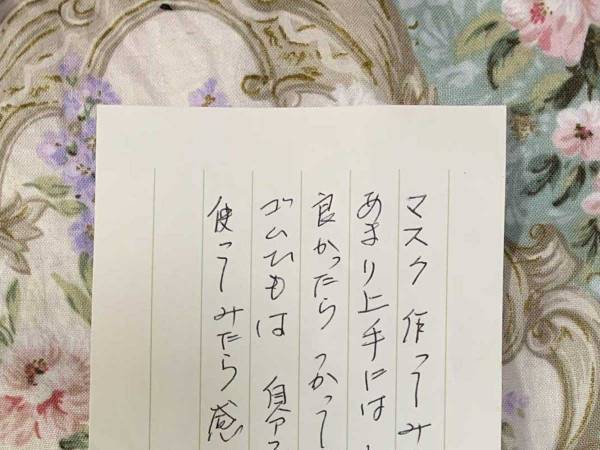 マスク 作ってみ
あまり上手には
良かったら つかって
ゴムひもは 自分
使ってみたら感